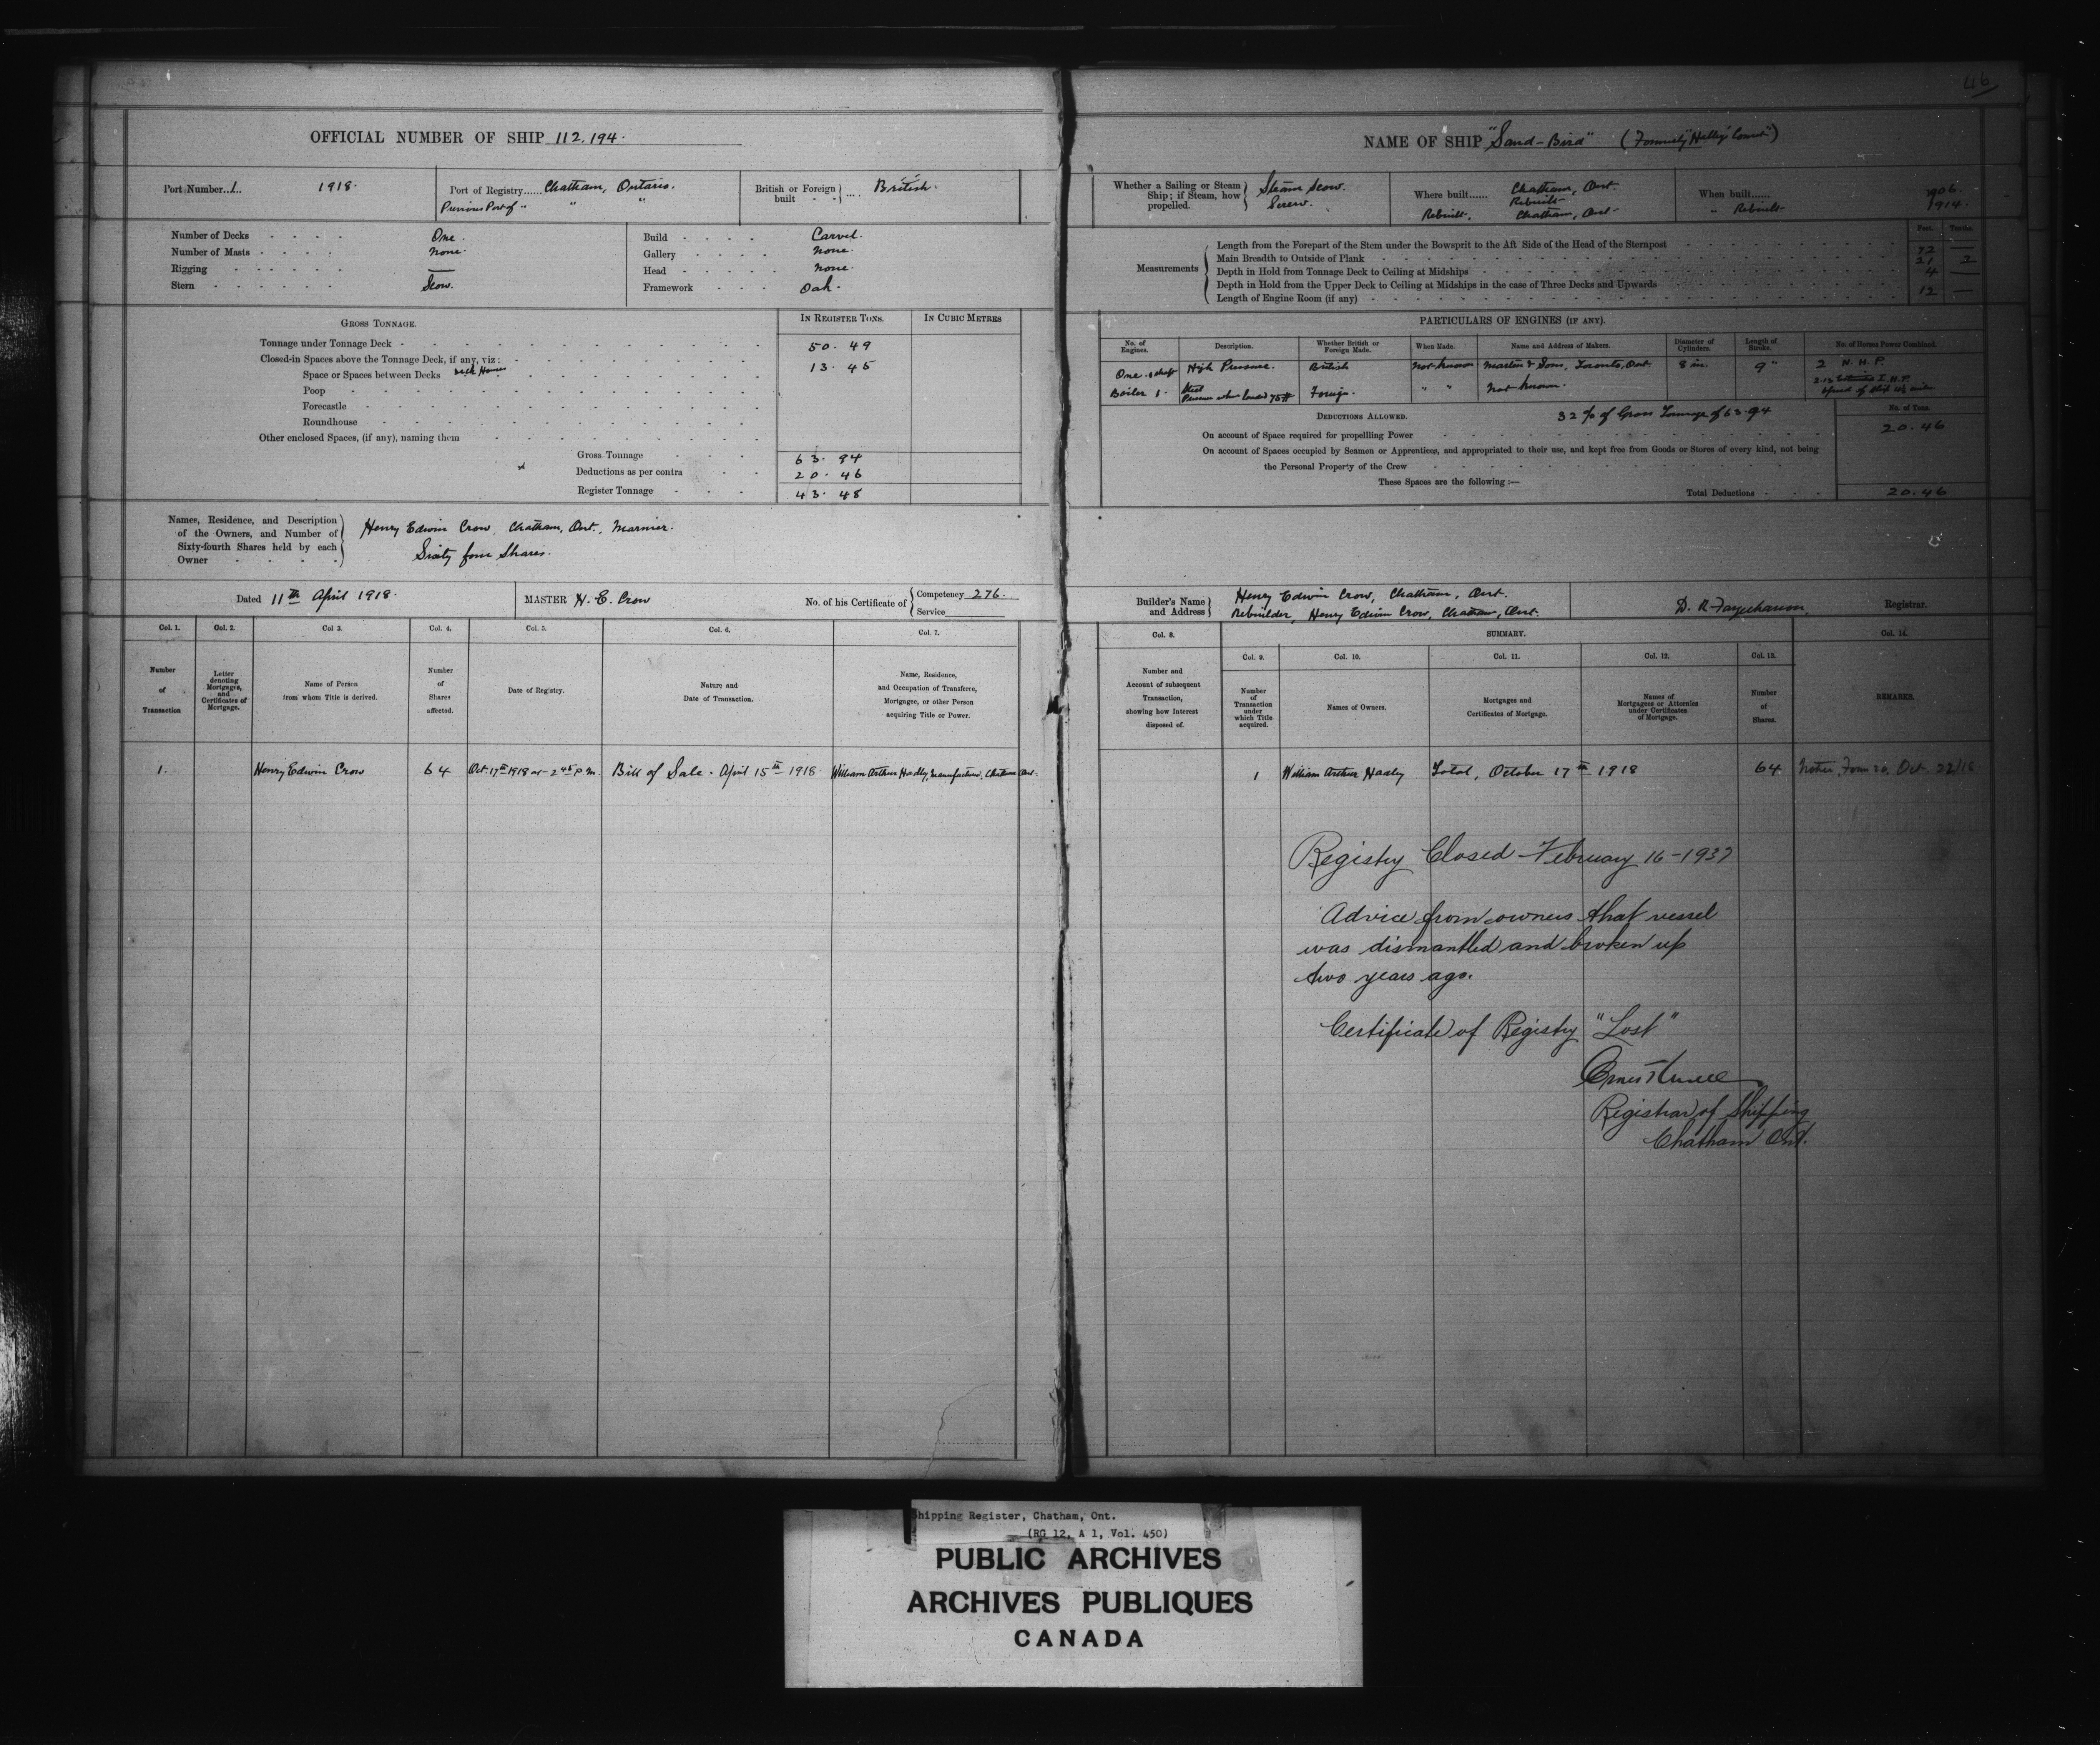 46
OFFICIAL NUMBER OF SHIP 112,194.
Port Number 1. 1918.
Port of Registry...... Chatham, Ontario.
Previous Port of " " "
British or Foreign built .... British.
Number of Decks One.
Number of Masts None.
Rigging —
Stern Scow.
Build Carvel.
Gallery None.
Head None.
Framework Oak.
GROSS TONNAGE. IN REGISTER TONS. IN CUBIC METRES
Tonnage under Tonnage Deck 50. 49
Closed-in Spaces above the Tonnage Deck, if any, viz:
Space or Spaces between Decks Deck House 13. 45
Poop
Forecastle
Roundhouse
Other enclosed Spaces, (if any), naming them
Gross Tonnage 63. 94
Deductions as per contra 20. 46
Register Tonnage 43. 48
Names, Residence, and Description
of the Owners, and Number of
Sixty-fourth Shares held by each
Owner
Henry Edwin Crow, Chatham, Ont., Marnier.
Sixty four Shares.
Dated 11th April 1918.
MASTER H. E. Crow
No. of his Certificate of Competency 276.
Service
Col. 1. Col. 2. Col 3. Col. 4. Col. 5. Col. 6. Col. 7.
Number of Transaction
Letter denoting Mortgages, and Certificates of Mortgage.
Name of Person from whom Title is derived.
Number of Shares affected.
Date of Registry.
Nature and Date of Transaction.
Name, Residence, and Occupation of Transferee, Mortgagee, or other Person acquiring Title or Power.
1. Henry Edwin Crow 64 Oct. 17th 1918 at 2 45 P.M. Bill of Sale. April 15th 1918. William Arthur Hadley, Manufacturer, Chatham Ont.
NAME OF SHIP "Sand-Bird" (Formerly
Whether a Sailing or Steam Ship; if Steam, how propelled.
Steam Scow.
Screw.
Where built...... Chatham, Ont.
Rebuilt
Rebuilt, Chatham, Ont.
When built...... 1906.
" Rebuilt 1914.
Measurements
Feet. Tenths.
Length from the Forepart of the Stem under the Bowsprit to the Aft Side of the Head of the Sternpost 72 —
Main Breadth to Outside of Plank 21 2
Depth in Hold from Tonnage Deck to Ceiling at Midships 4 —
Depth in Hold from the Upper Deck to Ceiling at Midships in the case of Three Decks and Upwards
Length of Engine Room (if any) 12 —
PARTICULARS OF ENGINES (IF ANY).
No. of Engines. Description. Whether British or Foreign Made. When Made. Name and Address of Makers. Diameter of Cylinders. Length of Stroke. No. of Horses Power Combined.
One & shaft High Pressure. British Not known Martin & Sons, Toronto, Ont. 8 in. 9" 2 N. H. P.
Boiler 1. Steel Foreign. " " Not known.
Pressure when loaded 75 #
DEDUCTIONS ALLOWED. 32 % of Gross Tonnage of 63.94
No. of Tons.
On account of Space required for propelling Power 20.46
On account of Spaces occupied by Seamen or Apprentices, and appropriated to their use, and kept free from Goods or Stores of every kind, not being
the Personal Property of the Crew
These Spaces are the following:—
Total Deductions 20.46
Builder's Name and Address
Henry Edwin Crow, Chatham, Ont.
Rebuilder, Henry Edwin Crow, Chatham, Ont.
Registrar.
Col. 8. SUMMARY. Col. 14.
Col. 9. Col. 10. Col. 11. Col. 12. Col. 13.
Number and Account of subsequent Transaction, showing how Interest disposed of.
Number of Transaction under which Title acquired.
Names of Owners.
Mortgages and Certificates of Mortgage.
Names of Mortgagees or Attornies under Certificates of Mortgage.
Number of Shares.
REMARKS.
1 William Arthur Hadley Total, October 17th 1918 64 Notice, Form 20, Oct. 22/18
Registry Closed - February 16-1937
Advice from owners that vessel
was dismantled and broken up
two years ago.
Certificate of Registry "Lost"
Registrar of Shipping
Chatham Ont.
Shipping Register, Chatham, Ont.
(RG 12, A 1, Vol. 450)
PUBLIC ARCHIVES
ARCHIVES PUBLIQUES
CANADA